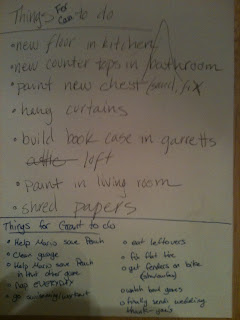 Things For Cara to do
• new floor in kitchen
• new counter tops in bathroom
• paint new chest/sand/fix
• hang curtains
• build book case in garretts
loft
• Paint in living room
• shred papers
Things for Garrett to do
• Help Mario save Peach
• Clean garage
• Help Mario save Peach
in that other game
• Poop EVERYDAY
• go swimming/workout
• eat leftovers
• fix flat tire
• get fenders on bike
• watch bad games
• finally send wedding
thank-yous